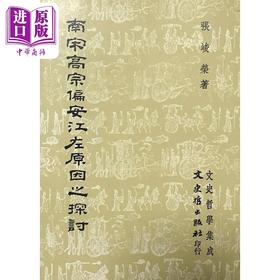 中商
原版
張峻榮著
南宋高宗偏安江左原因之探討
文史哲學集成
文史哲出版社印行